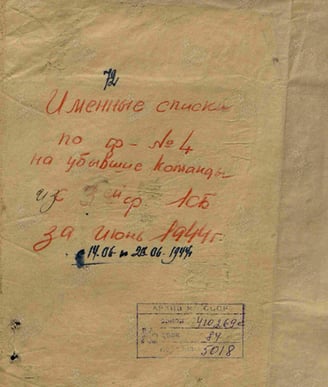 72
Именные списки
по ф-№4
на убывшие команды
из
за июнь 1944г.
14.06 и 28.06.1944г
АРХИВ М.О. СССР
84
5018